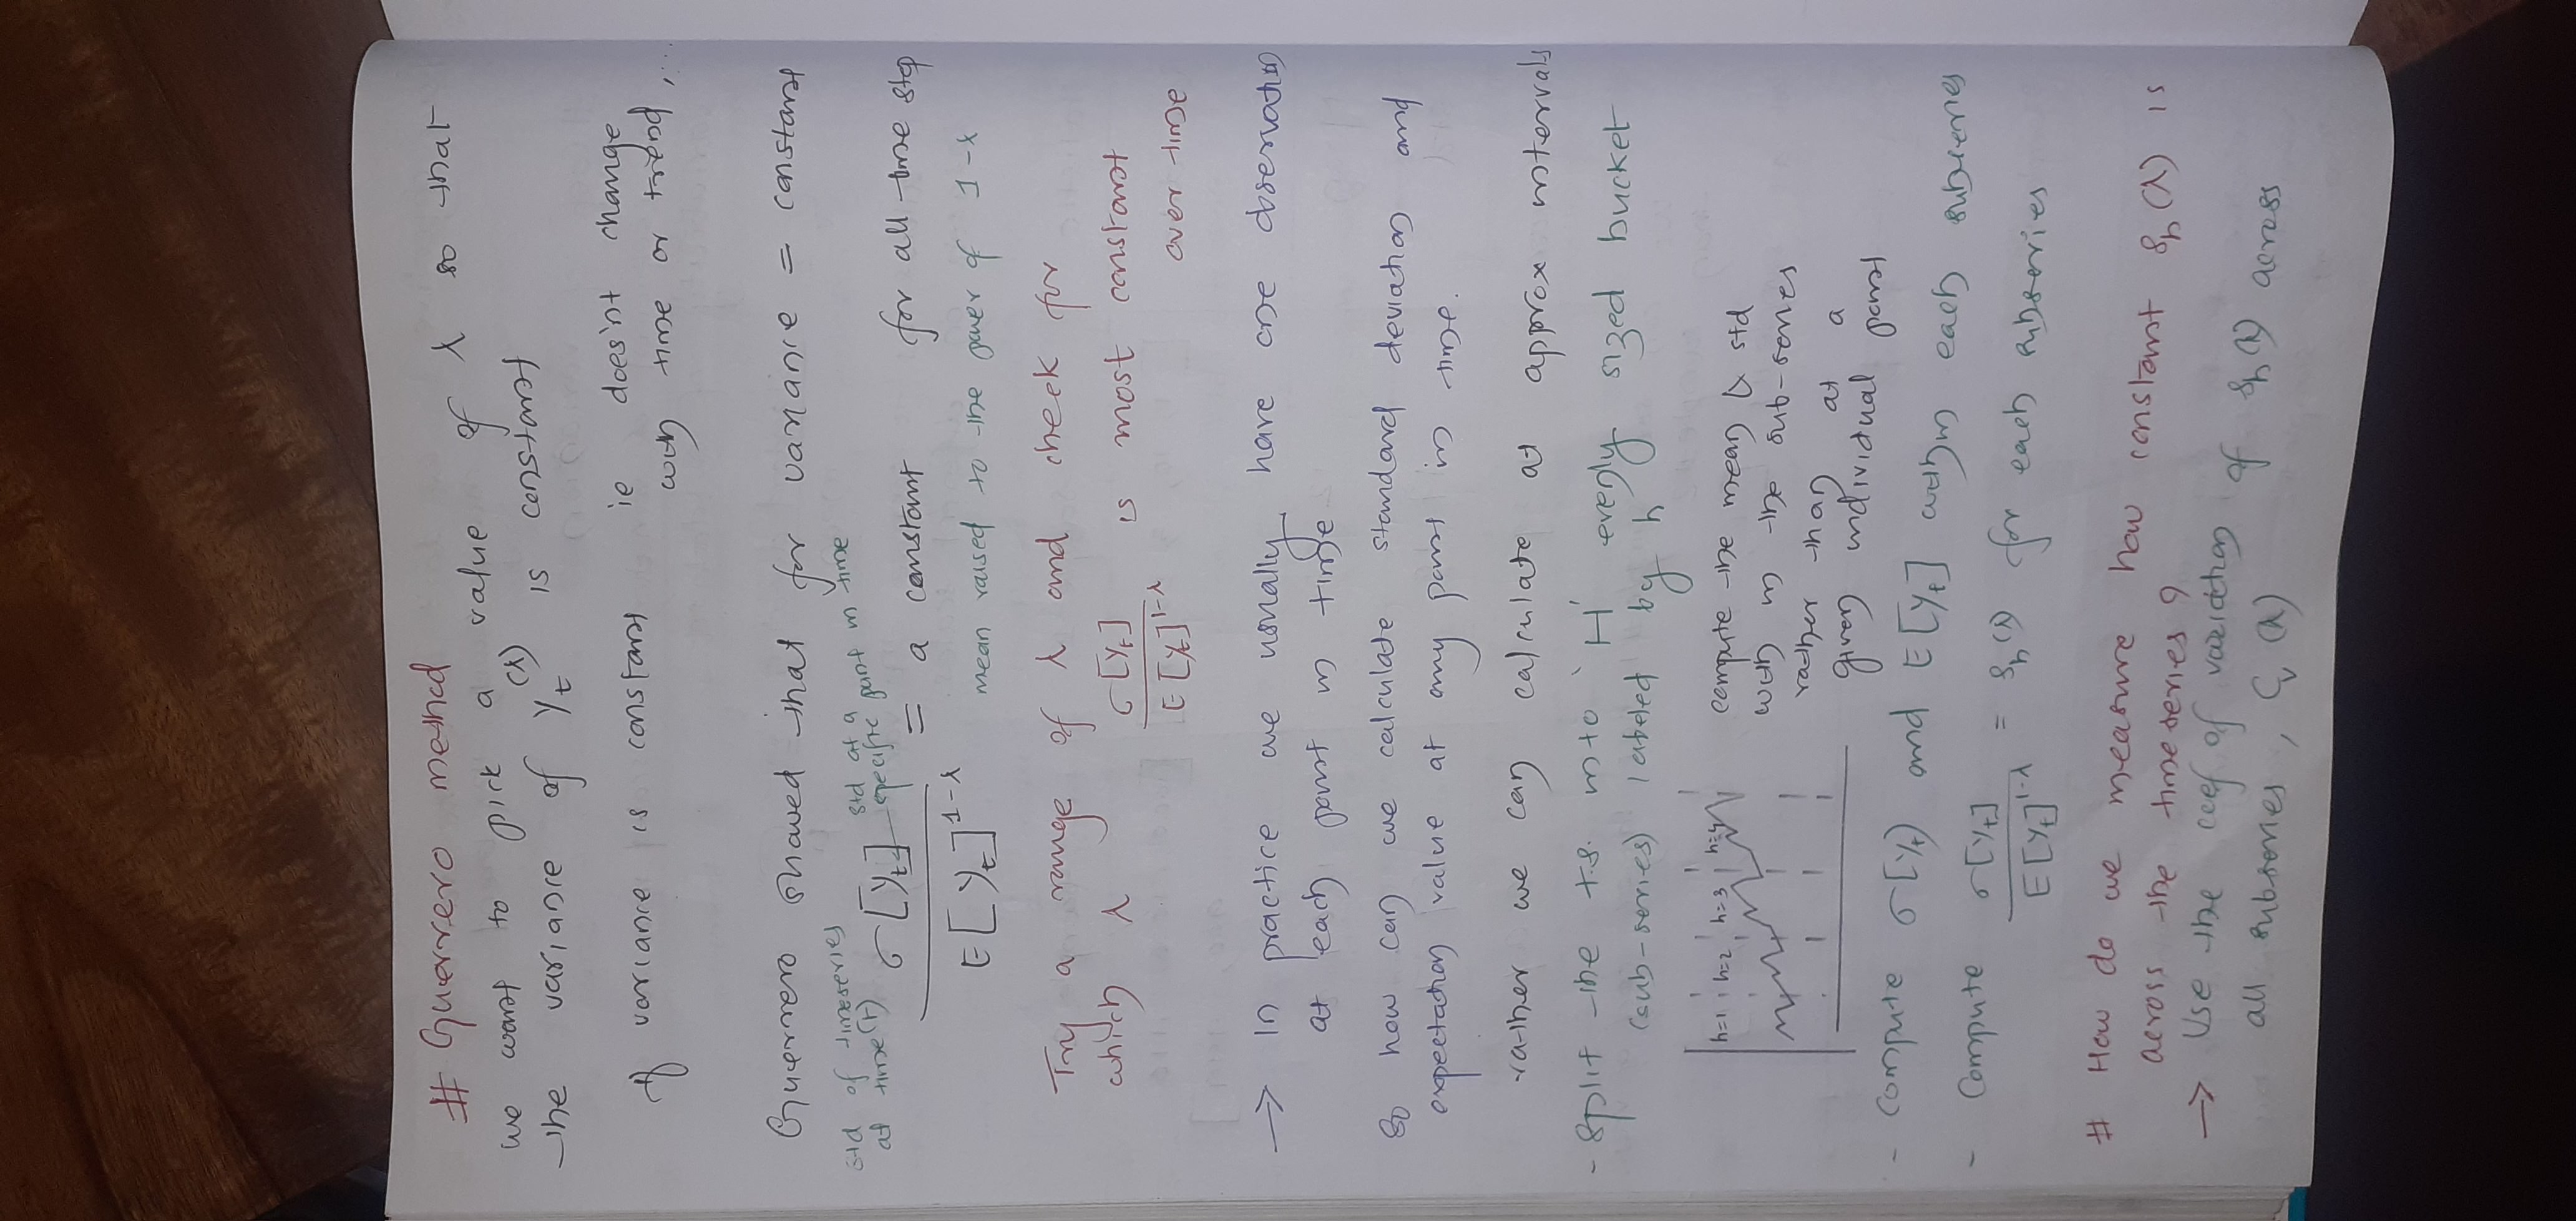 # Guerrero method
we want to pick a value of λ so that
the variance of y_t^(λ) is constant
If variance is constant ie does'nt change
with time or trend, ...
Guerrero showed that for variance = constant
std of timeseries
at time(t)
std at a
specific point in time
σ[y_t] / E[y_t]^(1-λ) = a constant for all time step
mean raised to the power of 1-λ
Try a range of λ and check for
which λ σ[y_t] / E[y_t]^(1-λ) is most constant
over time
→ In practice we usually have one observation
at each point in time
So how can we calculate standard deviation and
expectation value at any point in time.
rather we can calculate at approx intervals
- split the t.s. into 'H' evenly sized bucket
(sub-series) labeled by h
h=1 h=2 h=3 h=4
compute the mean & std
with in the sub-series
rather than at a
given individual point
- compute σ[y_t) and E[y_t] within each subseries
- Compute σ[y_t] / E[y_t]^(1-λ) = s_h(λ) for each subseries
# How do we measure how constant s_h(λ) is
across the timeseries ?
→ Use the coef of variation of s_h(λ) across
all subseries, c_v(λ)